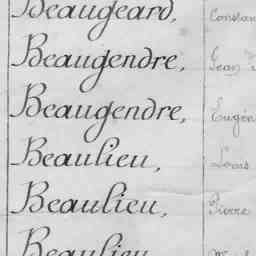 Beaugeard, Constan
Beaugendre, Jean
Beaugendre, Eugén
Beaulieu, Louis
Beaulieu, Pierre
Beaulieu